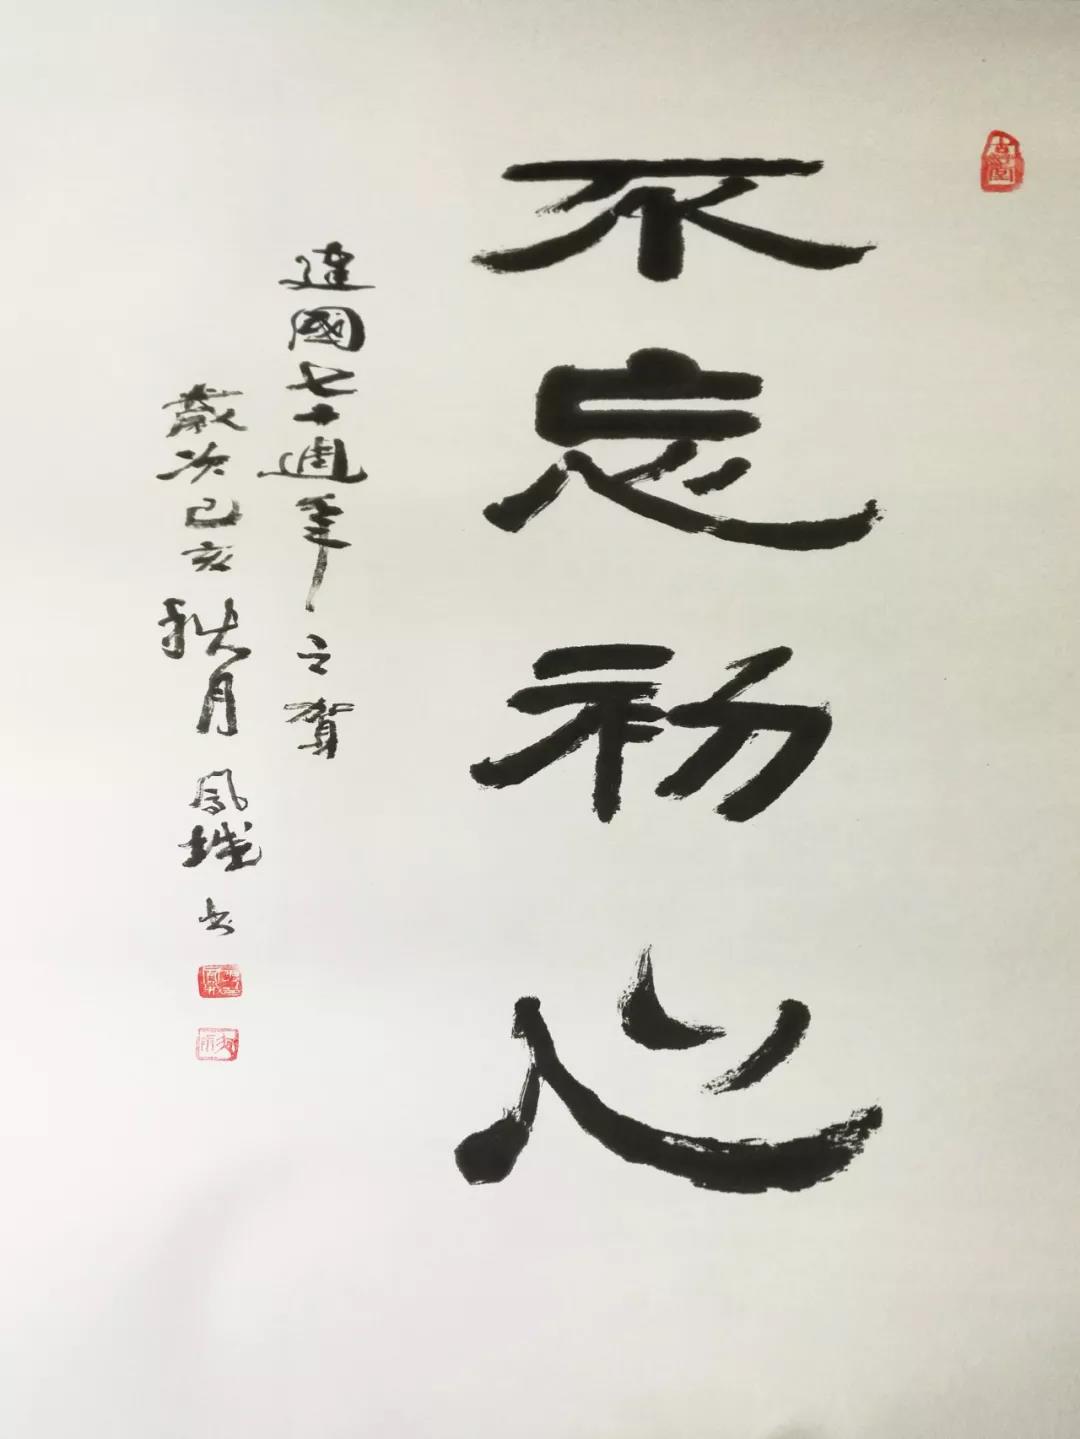 不忘初心
建國七十週年之賀
歲次己亥秋月鳳城书